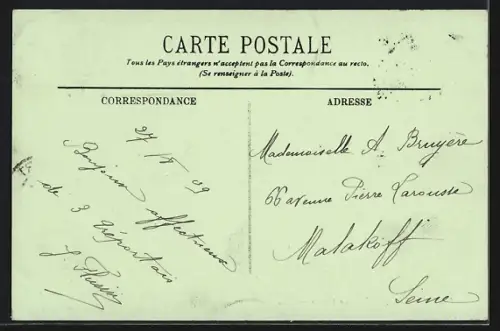 CARTE POSTALE
Tous les Pays étrangers n'acceptent pas la Correspondance au recto.
(Se renseigner à la Poste).
CORRESPONDANCE
27/ /09
Bonjour affectueux
de 3 Tréportais
ADRESSE
Mademoiselle A. Bruyère
66 avenue Pierre Larousse
Malakoff
Seine